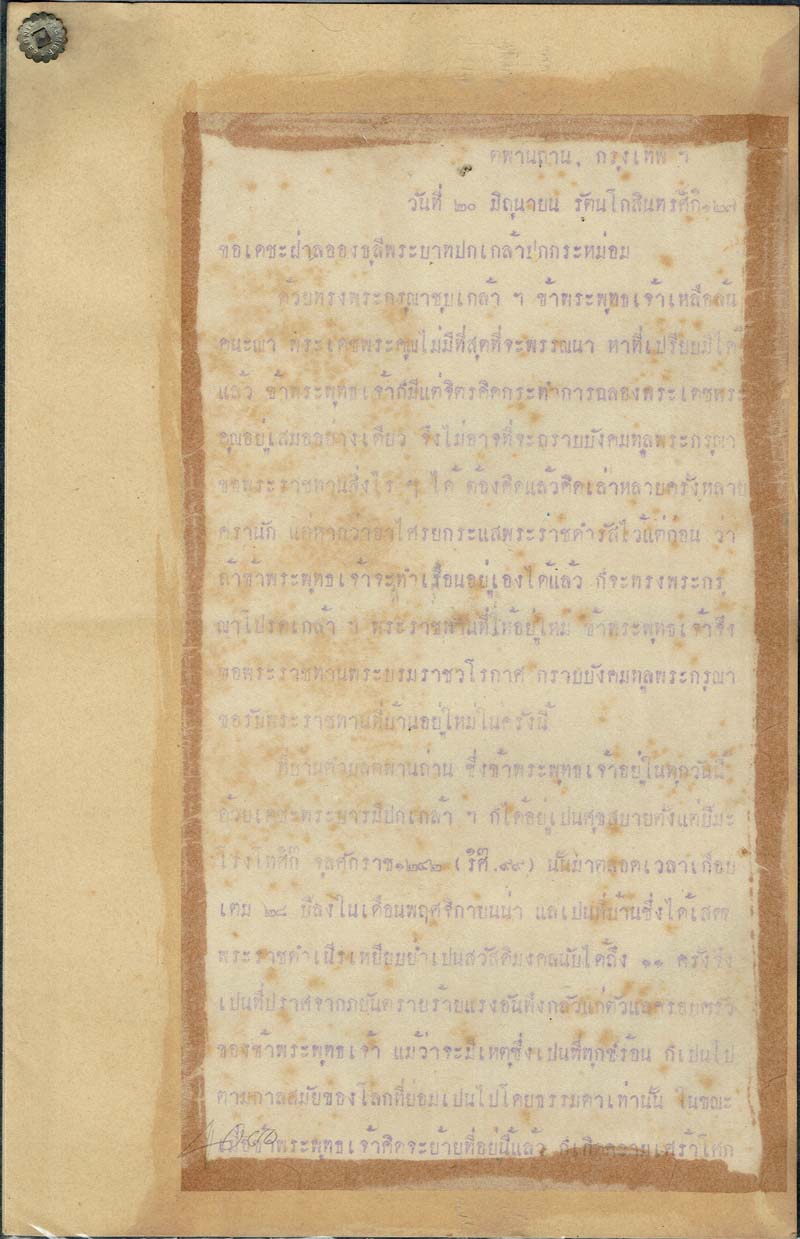 ตพานถ่าน, กรุงเทพ ฯ
วันที่ ๒๐ มิถุนายน รัตนโกสินทรศัก๊ ๑๒๗
ขอเดชะฝ่าลอองธุลีพระบาทปกเกล้าปกกระหม่อม
ด้วยทรงพระกรุณาชุบเกล้า ฯ ข้าพระพุทธเจ้าเหลือล้น
คนะณา พระเดชพระคุณไม่มีที่สุดที่จะพรรณนา หาที่เปรียบมิได้
แล้ว ข้าพระพุทธเจ้าก็มีแต่จิตรคิดกระทำการฉลองพระเดชพระ
คุณอยู่เสมออย่างเดียว จึงไม่อาจที่จะกราบบังคมทูลพระกรุณา
ขอพระราชทานสิ่งไร ๆ ได้ ต้องคิดแล้วคิดเล่าหลายครั้งหลาย
ครานัก แต่หากว่าอาไศรยกระแสพระราชดำรัสไว้แต่ก่อน ว่า
ถ้าข้าพระพุทธเจ้าจะทำเรือนอยู่เองได้แล้ว ก็จะทรงพระกรุ
ณาโปรดเกล้า ฯ พระราชทานที่ให้อยู่ใหม่ ข้าพระพุทธเจ้าจึง
ขอพระราชทานพระบรมราชวโรกาศ กราบบังคมทูลพระกรุณา
ขอรับพระราชทานที่บ้านอยู่ใหม่ในครั้งนี้
ที่บ้านตำบลตพานถ่าน ซึ่งข้าพระพุทธเจ้าอยู่ในทุกวันนี้
ด้วยเดชะพระบารมีปกเกล้า ฯ ก็ได้อยู่เปนศุขสบายตั้งแต่ปีมะ
โรงโทศ๊ก จุลศักราช ๑๒๔๒ (ร๊ศ.๙๙) นั้นมาตลอดเวลาเกือบ
เตม ๒๘ ปีลงในเดือนพฤศจิกายนน่า แลเปนที่บ้านซึ่งได้เสด็จ
พระราชดำเนิรเหยียบย่ำเปนสวัสดิมงคลนับได้ถึง ๑๑ ครั้งจึง
เปนที่ปราศจากภยันตรายร้ายแรงอันพึงกลัวแก่ตัวแลครอบครัว
ของข้าพระพุทธเจ้า แม้ว่าจะมีเหตุซึ่งเปนที่ทุกข์ร้อน ก็เปนไป
ตามกาลสมัยของโลกที่ย่อมเปนไปโดยธรรมดาเท่านั้น ในขณะ
เมื่อข้าพระพุทธเจ้าคิดจะย้ายที่อยู่นี้แล้ว ก็เกิดความเศร้าโศก